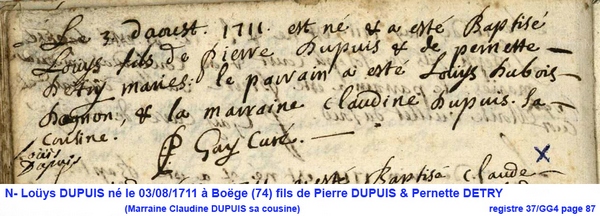 Le 3 daoust. 1711. est né & a esté Baptisé
Loüÿs fils de Pierre Dupuis & de pernette
Detry mariés: le parrain a esté Loüÿs dubois
hamon, & la marraine Claudine Dupuis. sa
Cousine.
P Gay Curé.
Loüis
Dupuis
esté Baptisé Claude
X
N- Loüÿs DUPUIS né le 03/08/1711 à Boëge (74) fils de Pierre DUPUIS & Pernette DETRY
(Marraine Claudine DUPUIS sa cousine)
registre 37/GG4 page 87